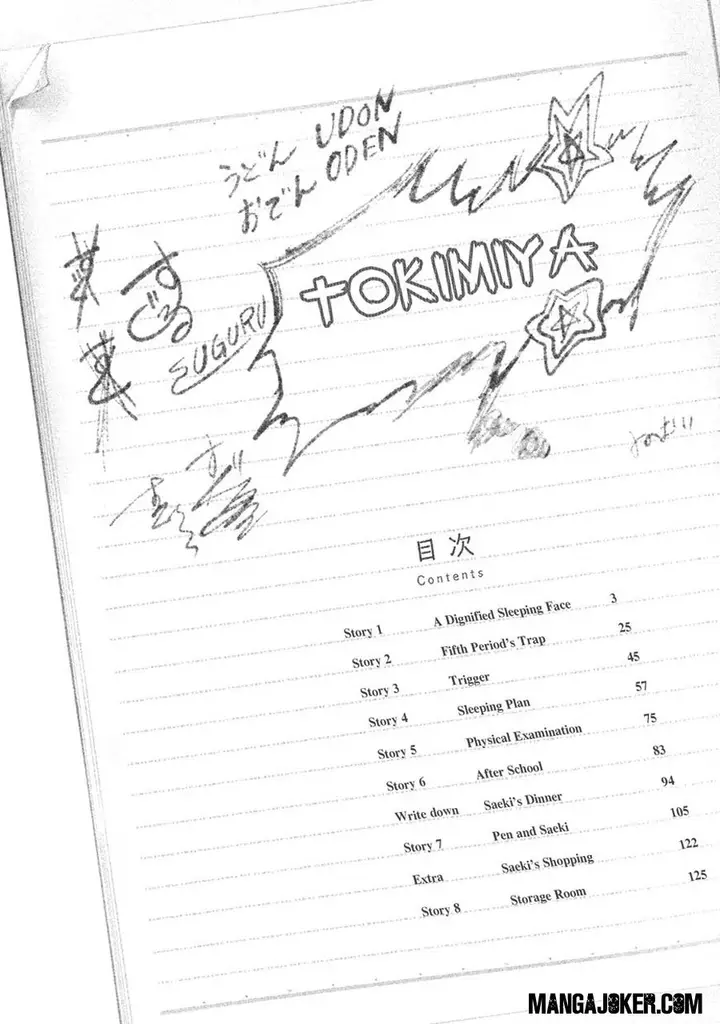 うどん UDON
おでん ODEN
すぐる
SUGURU
TOKIMIYA
目次
Contents
Story 1 A Dignified Sleeping Face 3
Story 2 Fifth Period's Trap 25
Story 3 Trigger 45
Story 4 Sleeping Plan 57
Story 5 Physical Examination 75
Story 6 After School 83
Write down Saeki's Dinner 94
Story 7 Pen and Saeki 105
Extra Saeki's Shopping 122
Story 8 Storage Room 125
MANGAJOKER.COM